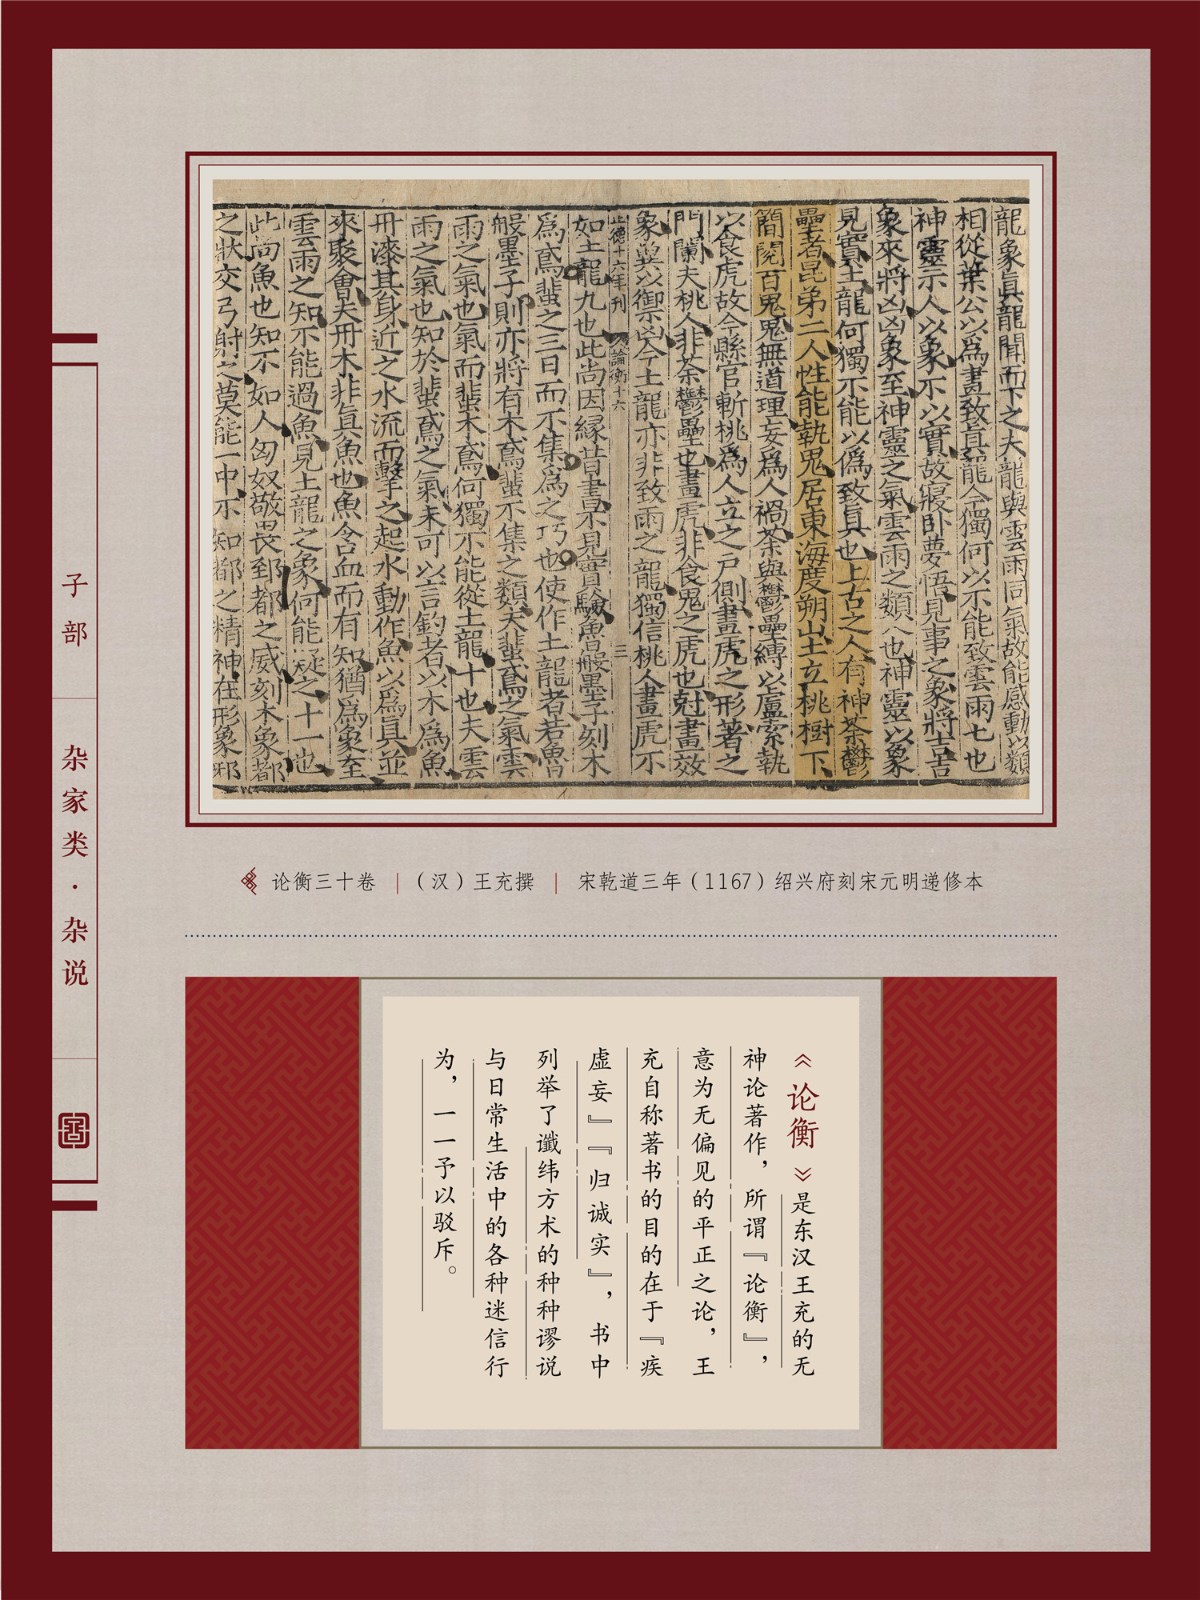 龍象真龍聞而下之夫龍與雲雨同氣故能感動以類
相從葉公以爲畫致真龍今獨何以不能致雲雨七也
神靈示人以象不以實故寢卧夢悟見事之象將吉吉
象來將凶凶象至神靈之氣雲雨之類八也神靈以象
見實土龍何獨不能以僞致真也上古之人有神荼鬱
壘者昆弟二人性能執鬼居東海度朔山上立桃樹下
簡閱百鬼鬼無道理妄爲人禍荼與鬱壘縛以盧索執
以食虎故今縣官斬桃爲人立之戶側畫虎之形著之
門闌夫桃人非荼鬱壘也畫虎非食鬼之虎也尅畫效
象兾以禦凶今土龍亦非致雨之龍獨信桃人畫虎不
正德十六年刊 論衡十六 三
如土龍九也此尚因緣昔書不見實驗魯般墨子刻木
爲鳶蜚之三日而不集爲之巧也使作土龍者若魯
般墨子則亦將有木鳶蜚不集之類夫蜚鳶之氣雲
雨之氣也氣而蜚木鳶何獨不能從土龍十也夫雲
雨之氣也知於蜚鳶之氣未可以言釣者以木爲魚
丹漆其身近之水流而擊之起水動作魚以爲真並
來聚會夫丹木非真魚也魚含血而有知猶爲象至
雲雨之知不能過魚見土龍之象何能疑之十一也
此尚魚也知不如人匈奴敬畏郅都之威刻木象都
之狀交弓射之莫能一中不知都之精神在形象邪
子部
杂家类·杂说
论衡三十卷 | (汉)王充撰 | 宋乾道三年(1167)绍兴府刻宋元明递修本
《论衡》是东汉王充的无
神论著作，所谓『论衡』，
意为无偏见的平正之论，王
充自称著书的目的在于『疾
虚妄』『归诚实』，书中
列举了谶纬方术的种种谬说
与日常生活中的各种迷信行
为，一一予以驳斥。